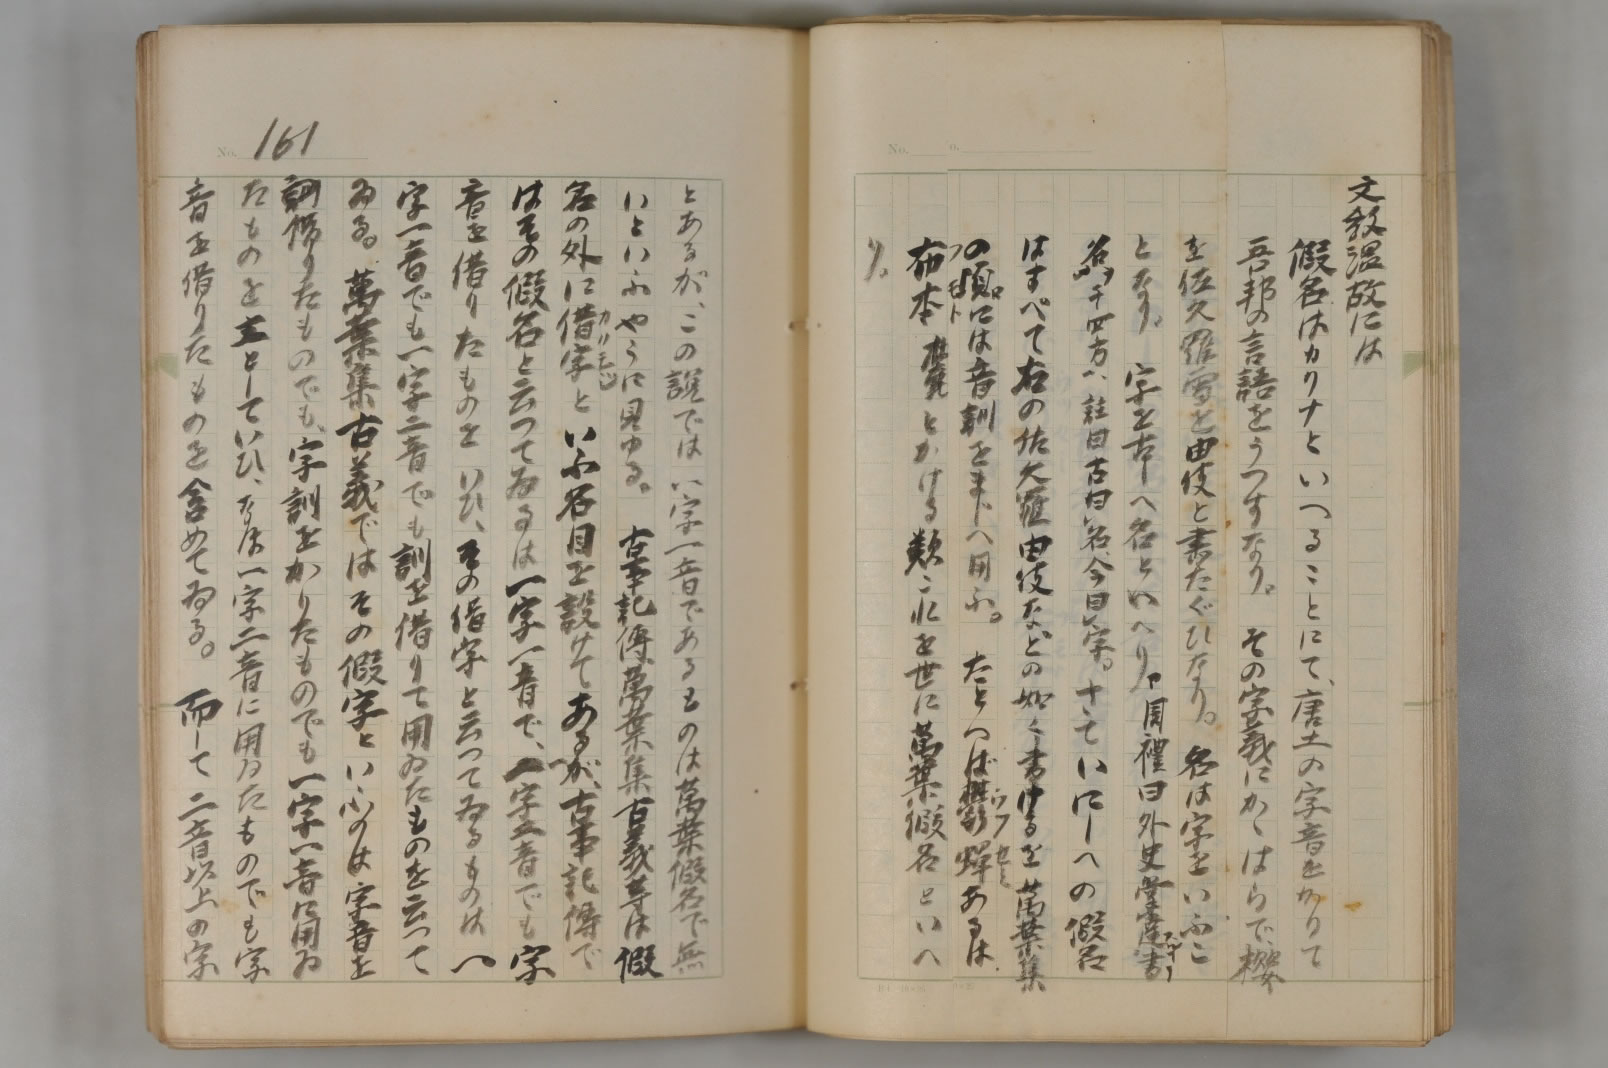 文教温故には
假名はカリナといへることにて、唐土の字音をかりて
吾邦の言語をうつすなり。その字義にかゝはらで、櫻
を佐久羅雪を由伎と書たぐひなり。名は字をいふこ
となり。字を古へ名といへり。周禮曰外史掌達書
名于四方、註曰古曰名、今曰字。さていにしへの假名
はすべて右の佐久羅由伎などの如く書けるを萬葉集
の頃には音訓をまじへ用ふ。たとへば欝蝉あるは
布本 とかける類これを世に萬葉假名といへ
り。
No. 161
とあるが、この説では一字一音であるものは萬葉假名で無
いといふやうに見ゆる。古事記傳萬葉集古義等は假
名の外に借字といふ名目を設けてあるが、古事記傳で
はその假名と云つてゐるは一字一音で、一字二音でも字
音を借りたものをいひ、その借字と云つてゐるものは一
字一音でも一字二音でも訓を借りて用ゐたものを云つて
ゐる。萬葉集古義ではその假字といふのは字音を
訓借りたものでも、字訓をかりたものでも一字一音に用ゐ
たものを主としていひ、なほ一字二音に用ゐたものでも字
音を借りたものを含めてゐる。而して二音以上の字